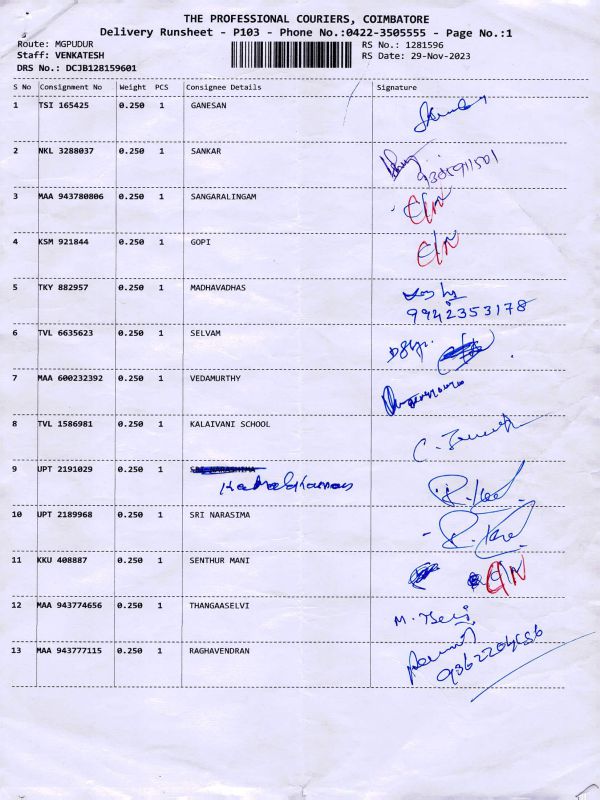 THE PROFESSIONAL COURIERS, COIMBATORE
Delivery Runsheet - P103 - Phone No.:0422-3505555 - Page No.:1
Route: MGPUDUR RS No.: 1281596
Staff: VENKATESH RS Date: 29-Nov-2023
DRS No.: DCJB128159601
S No Consignment No Weight PCS Consignee Details Signature
1 TSI 165425 0.250 1 GANESAN
2 NKL 3288037 0.250 1 SANKAR
3 MAA 943780806 0.250 1 SANGARALINGAM
4 KSM 921844 0.250 1 GOPI
5 TKY 882957 0.250 1 MADHAVADHAS
9942353178
6 TVL 6635623 0.250 1 SELVAM
7 MAA 600232392 0.250 1 VEDAMURTHY
8 TVL 1586981 0.250 1 KALAIVANI SCHOOL
9 UPT 2191029 0.250 1 SRI NARASHIMA
10 UPT 2189968 0.250 1 SRI NARASIMA
11 KKU 408887 0.250 1 SENTHUR MANI
12 MAA 943774656 0.250 1 THANGAASELVI
13 MAA 943777115 0.250 1 RAGHAVENDRAN